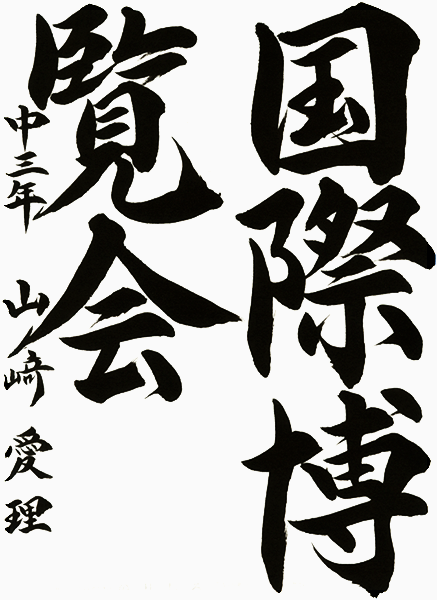 国際博
覧会
中三年 山﨑 愛理